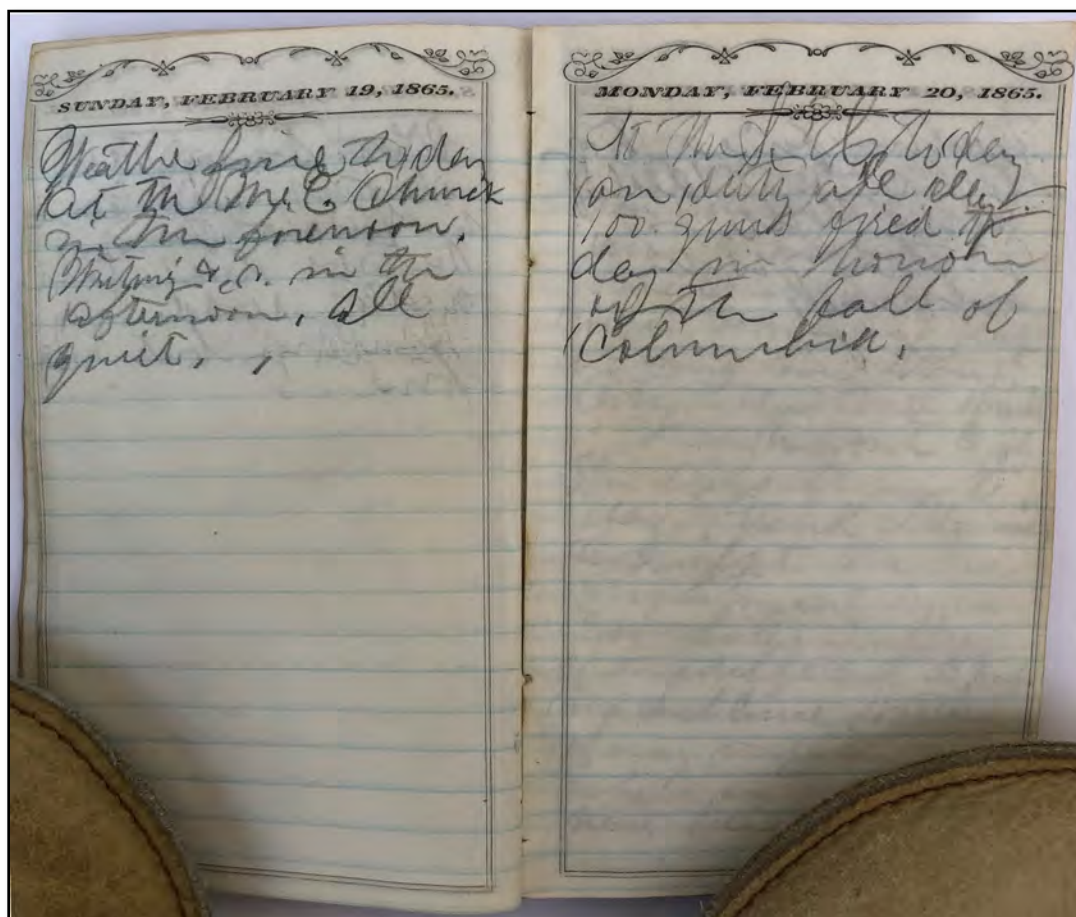 SUNDAY, FEBRUARY 19, 1865.
Weathe fine this day
at the M. E. Church
in the forenoon,
Writing &c. in the
afternoon, all
quiet,
MONDAY, FEBRUARY 20, 1865.
At the to day
on duty all day.
100. guns fired to
day in honor
of the fall of
Columbia,